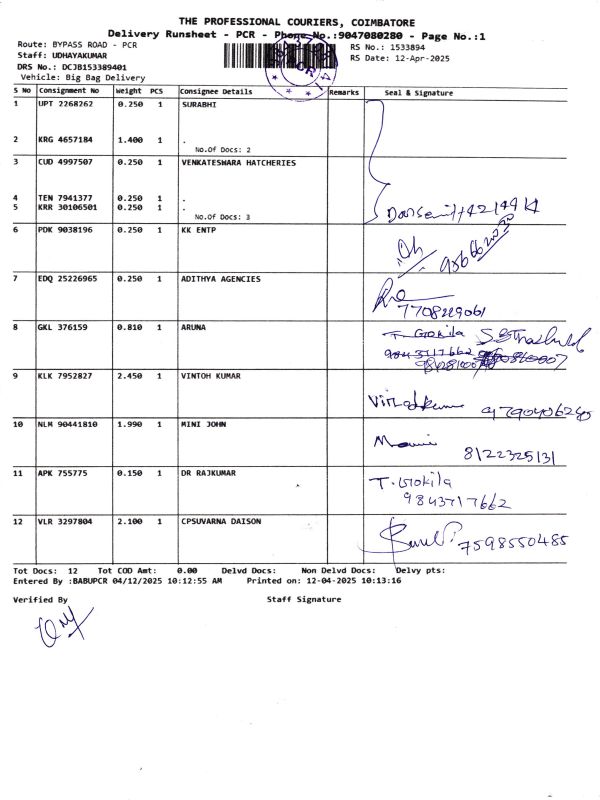 THE PROFESSIONAL COURIERS, COIMBATORE
Delivery Runsheet - PCR - Phone No.:9047080280 - Page No.:1
Route: BYPASS ROAD - PCR
RS No.: 1533894
Staff: UDHAYAKUMAR
RS Date: 12-Apr-2025
DRS No.: DCJB153389401
Vehicle: Big Bag Delivery
S No Consignment No Weight PCS Consignee Details Remarks Seal & Signature
1 UPT 2268262 0.250 1 SURABHI
2 KRG 4657184 1.400 1 .
No.Of Docs: 2
3 CUD 4997507 0.250 1 VENKATESWARA HATCHERIES
4 TEN 7941377 0.250 1 .
5 KRR 30106501 0.250 1 .
No.Of Docs: 3
6 PDK 9038196 0.250 1 KK ENTP
7 EDQ 25226965 0.250 1 ADITHYA AGENCIES
7708229061
8 GKL 376159 0.810 1 ARUNA T. Gokila
9843717662
9 KLK 7952827 2.450 1 VINTOH KUMAR
9790406245
10 NLM 90441810 1.990 1 MINI JOHN
8122325131
11 APK 755775 0.150 1 DR RAJKUMAR T. Gokila
9843717662
12 VLR 3297804 2.100 1 CPSUVARNA DAISON
7598550485
Tot Docs: 12 Tot COD Amt: 0.00 Delvd Docs: Non Delvd Docs: Delvy pts:
Entered By :BABUPCR 04/12/2025 10:12:55 AM Printed on: 12-04-2025 10:13:16
Verified By Staff Signature